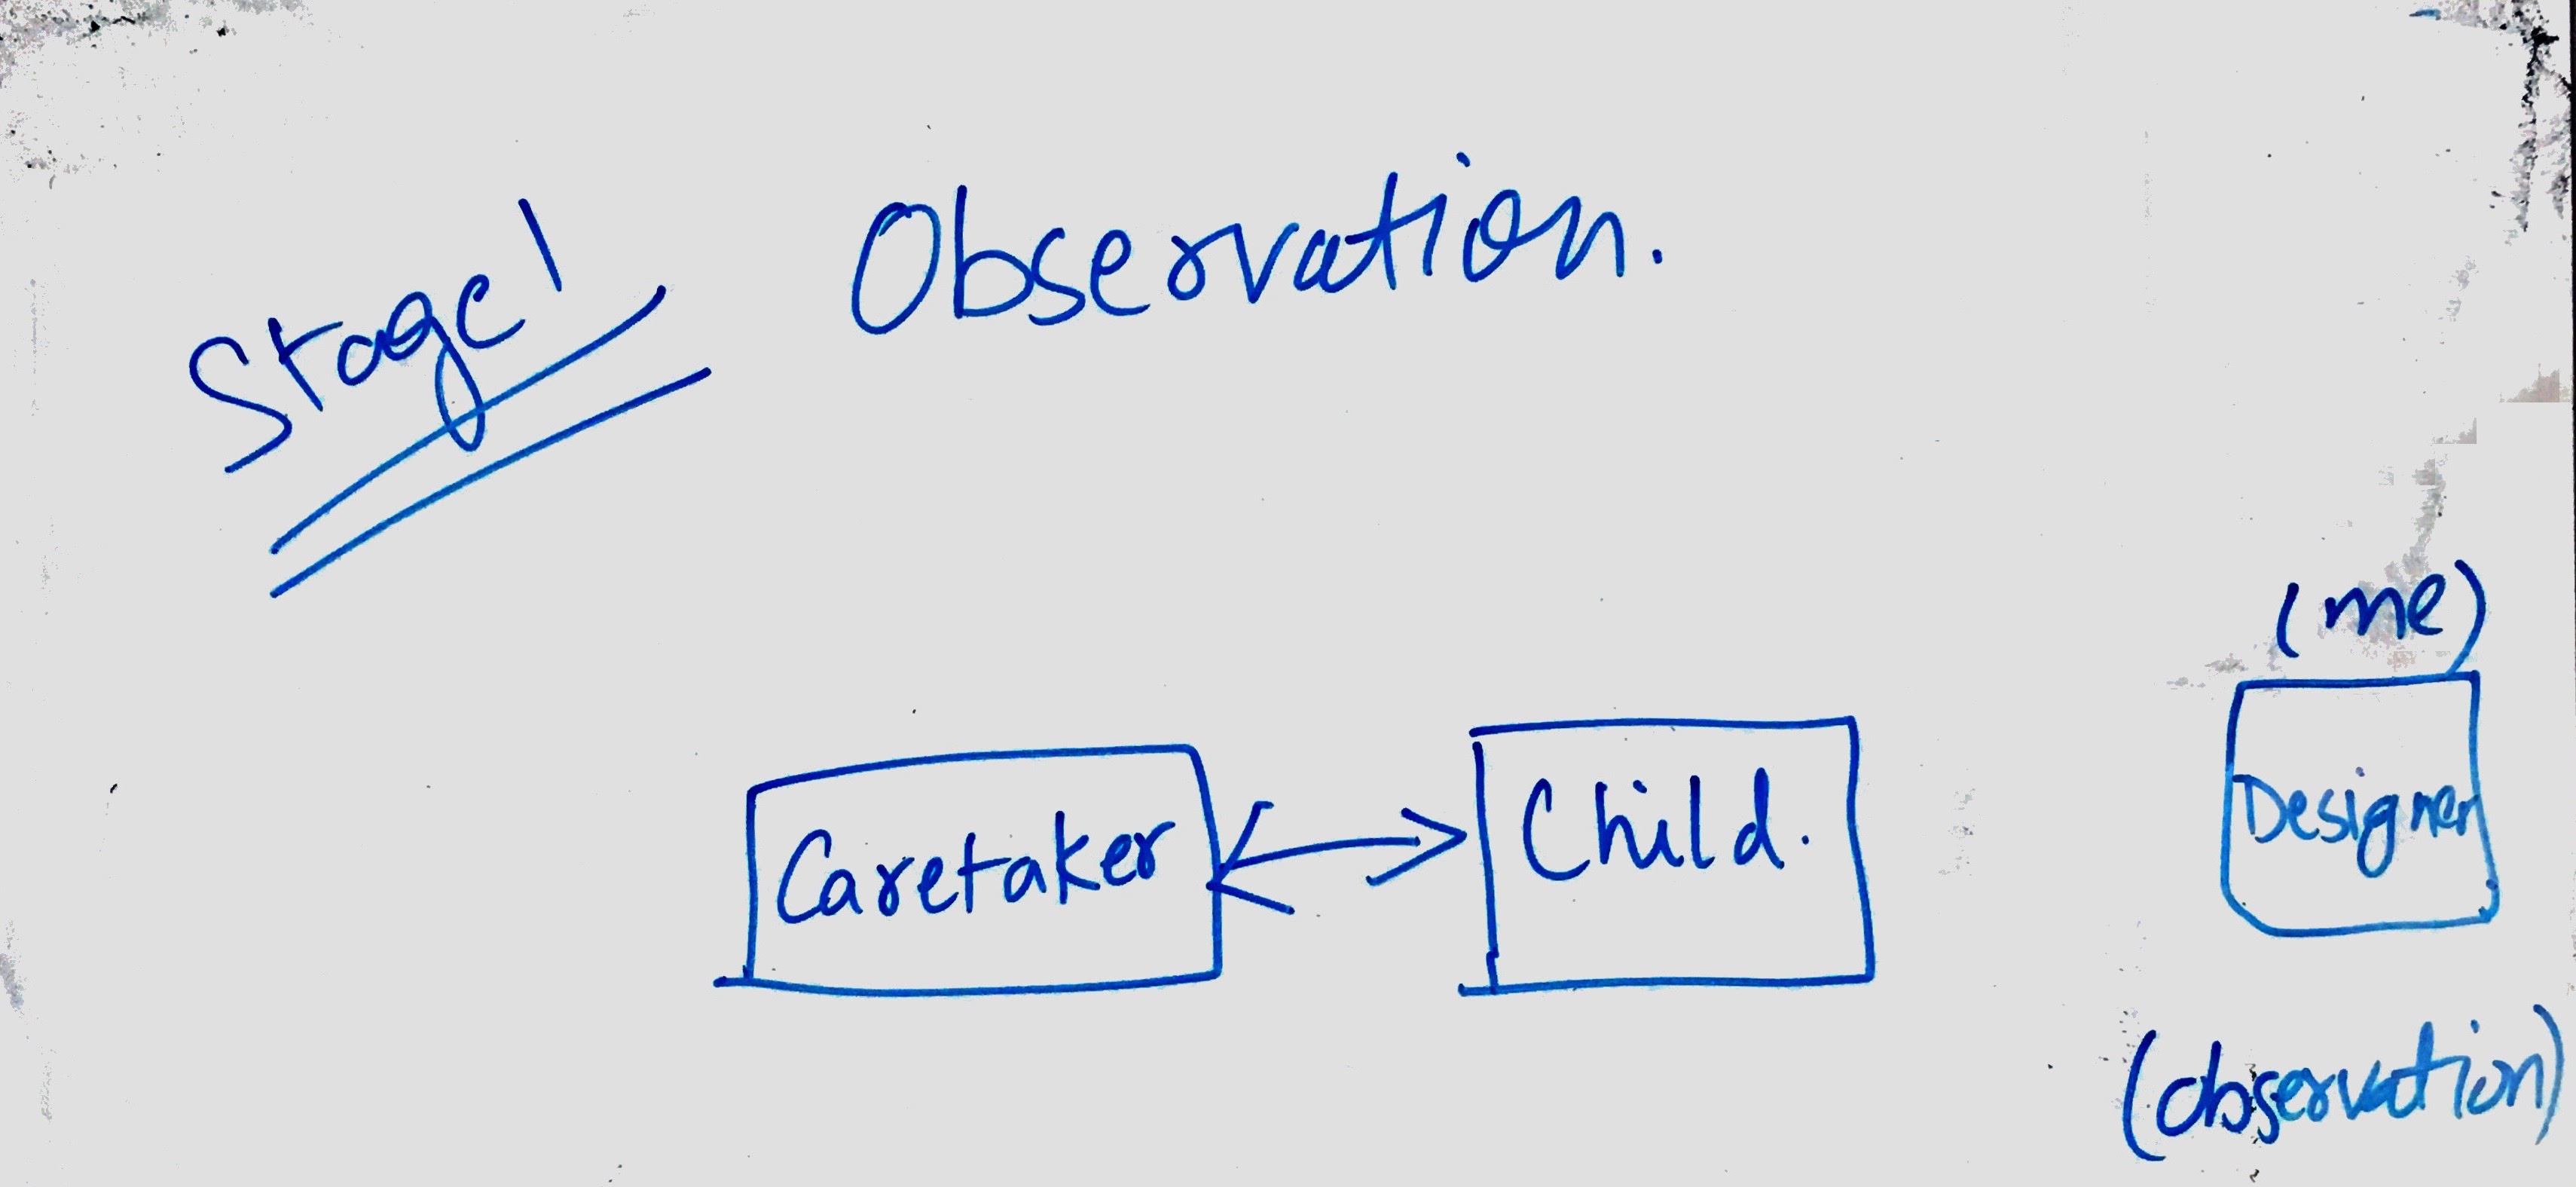 Stage 1
Observation.
(me)
Caretaker
Child.
Designer
(observation)